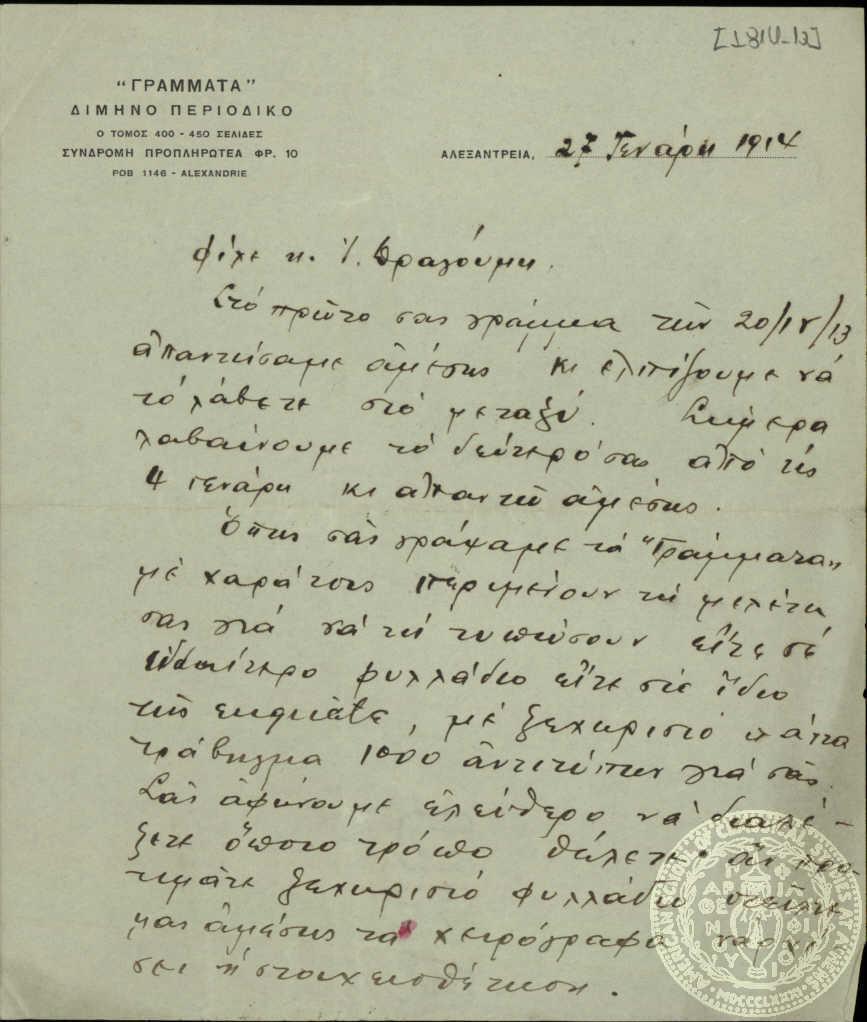 "ΓΡΑΜΜΑΤΑ"
ΔΙΜΗΝΟ ΠΕΡΙΟΔΙΚΟ
Ο ΤΟΜΟΣ 400 - 450 ΣΕΛΙΔΕΣ
ΣΥΝΔΡΟΜΗ ΠΡΟΠΛΗΡΩΤΕΑ ΦΡ. 10
POB 1146 - ALEXANDRIE
ΑΛΕΞΑΝΤΡΕΙΑ, 27 Γενάρη 1914
Φίλε κ. Ἴ. Δραγούμη.
Στό πρῶτο σας γράμμα τῶν 20/IV/13
ἀπαντήσαμε ἀμέσως κι ἐλπίζουμε νά
τό λάβετε στό μεταξύ. Σήμερα
λαβαίνουμε τό δεύτερό σας ἀπό τίς
4 Γενάρη κι ἀπαντῶ ἀμέσως.
Ὅπως σᾶς γράψαμε τά "Γράμματα"
μέ χαρά τους περιμένουν τή μελέτη
σας γιά νά τή τυπώσουν εἴτε σέ
ἰδιαίτερο φυλλάδιο εἴτε στό ἴδιο
τῆς, μέ ξεχωριστό πάντα
τράβηγμα 1000 ἀντιτύπων γιά σᾶς.
Σᾶς ἀφήνουμε ἐλεύθερο νά διαλέ-
ξετε ὅποιο τρόπο θέλετε· ἄν προ-
τιμᾶτε ξεχωριστό φυλλάδιο στεῖλτε
μας ἀμέσως τά χειρόγραφα νἀρχί
σει ἡ στοιχειοθέτηση.